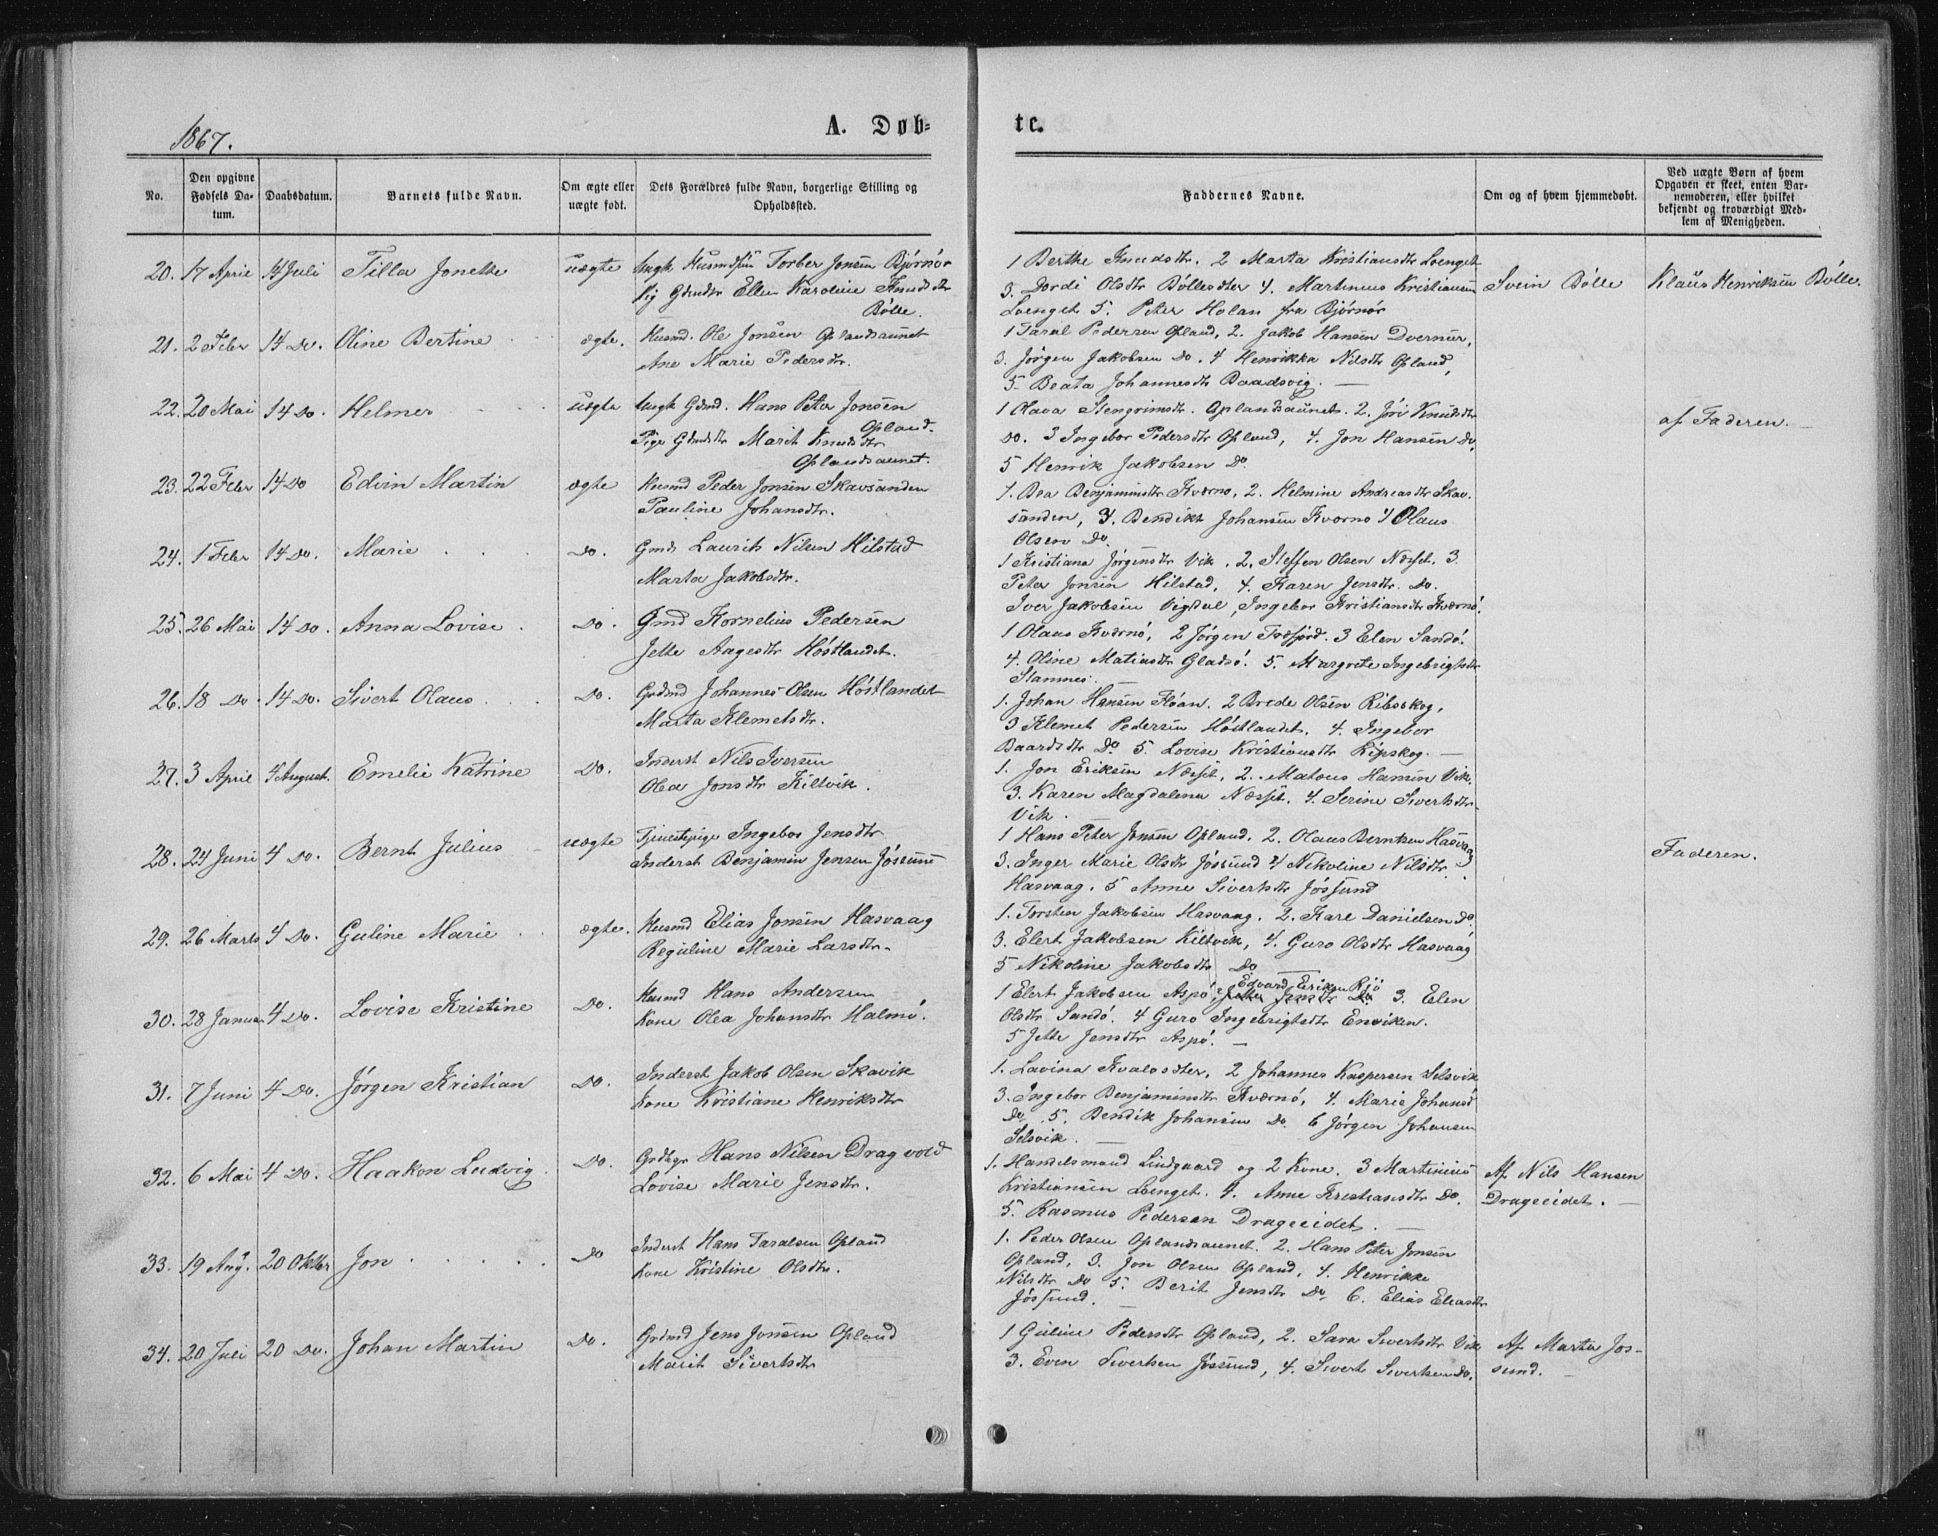 1867.
A. Døb-
te.
No.
Den opgivne Fødsels Da-tum.
Daabsdatum.
Barnets fulde Navn.
Om ægte eller uægte født.
Dets Forældres fulde Navn, borgerlige Stilling og Opholdssted.
Faddernes Navne.
Om og af hvem hjemmedøbt.
Ved uægte Børn af hvem Opgaven er skeet, enten Bar-nemoderen, eller hvilket bekjendt og troværdigt Med-lem af Menigheden.
20. 17 April 14 Juli Tilla Jonette uægte Ungk Husmdsøn Torber Jonsen Bjørnør
Pig Gdmdtr Ellen Karoline Knudsdtr
Bölle.
1 Berthe Knudsdtr. 2 Marta Kristiansdtr Loenget
3. Dordi Olsdtr Bölleseter 4. Martinus Kristiansen
Loenget 5. Peter Holan fra Bjørnør
Svein Bölle
Klaus Henriksen Bölle.
21. 2 Febr 14 Do. Oline Bertine ægte. Husmd. Ole Jonsen Oplandsaunet
Ane Marie Pedersdtr.
1 Taral Pedersen Opland, 2. Jakob Hansen Dvernur,
3. Jørgen Jakobsen Do. 4 Henrikka Nilsdtr Opland,
5. Beata Johannesdtr Baadsvig. —
22. 20 Mai 14 Do. Helmer uægte Ungk Gdmd. Hans Peter Jonsen
Opland.
Pige Gdmdtr Marit Knudsdtr
Oplandsaunet.
1 Olava Stengrimsdtr. Oplandsaunet. 2. Jöri Knudsdtr
Do. 3 Ingebor Pedersdtr Opland, 4. Jon Hansen Do.
5 Henrik Jakobsen Do
af Faderen. —
23. 22 Febr 14 Do Edvin Martin ægte Husmd Peder Jonsen Skavsanden
Pauline Johansdtr.
1. Bea Benjaminsdtr Kvernø, 2. Helmine Andreasdtr Skav-
sanden, 3. Bendikt Johansen Kvernø 4 Olaus
Olsen Do.
24. 1 Febr 14 Do. Marie Do. Gmd. Laurits Nilsen Hilstad
Marta Jakobsdtr.
1 Kristiana Jørgensdtr Vik. 2. Steffen Olsen Næsset. 3
Peter Jonsen Hilstad, 4. Karen Jensdtr. Do.
Iver Jakobsen Vigdal, Ingebor Kristiansdtr Kværnø.
25. 26 Mai 14 Do. Anna Lovise Do. Gmd Kornelius Pedersen
Jelle Aagesdtr Höstlandet.
1 Olaus Kværnö, 2 Jörgen Tosfjord. 3 Elen Sandö.
4. Oline Matiasdtr Gladsö. 5. Margrete Ingebrigtsdtr
Stamnes.
26. 18 Do. 14 Do. Sivert Olaus Do. Grdmd Johannes Olsen Höstlandet
Marta Klemetsdtr.
1. Johan Hansen Floan. 2 Brede Olsen Ribsskog,
3 Klemet Pedersen Höstlandet. 4. Ingebor
Baardsdtr Do. 5. Lovise Kristiansdtr Ripskog. —
27. 3 April 4 August. Emelie Katrine Do. Inderst Nils Iversen
Olea Jonsdtr Kiltvik.
1. Jon Eriksen Næsset, 2. Mataus Hansen Vik,
3. Karen Magdalena Næsset. 4. Serine Sivertsdtr
Vik.
28. 24 Juni 4 Do. Bernt Julius uægte Tjenestepige Ingebor Jensdtr
Inderst Benjamin Jensen Jössund
1 Hans Peter Jonsen Opland. 2. Olaus Berntsen Hasvag
3. Inger Marie Olsdtr Jössund 4 Nikoline Nilsdtr
Hasvaag. 5 Anne Sivertsdtr Jössund
Faderen.
29. 26 Marts 4 Do. Guline Marie ægte. Husmd Elias Jonsen Hasvaag
Reguline Marie Larsdtr.
1. Torsten Jakobsen Hasvaag. 2. Karl Danielsen Do
3. Elert Jakobsen Kiltvik, 4. Guro Olsdtr Hasvaag
5 Nikoline Jakobsdtr Do
30. 28 Januar 4 Do. Lovise Kristine Do. Husmd Hans Andersen
Kone Olea Johansdtr Halmö.
Edvard Eriksen Rjö
1 Elert Jakobsen Aspö, 2 Do 3. Elen
Olsdtr Sandö. 4 Guro Ingebrigtsdtr Enviken.
5 Jette Jensdtr Aspö. —
31. 7 Juni 4 Do. Jörgen Kristian Do. Inderst Jakob Olsen Skavik
Kone Kristiane Henriksdtr
1. Lavina Kvalosdter, 2 Johannes Kaspersen Selsvik
3. Ingebor Benjaminsdtr Kværnö, 4. Marie Johansd
Do. 5. Bendik Johansen Do. 6 Jörgen Johansen
Selsvik. —
32. 6 Mai 4 Do. Haakon Ludvig Do. Grdbgr Hans Nilsen Dragvold
Lovise Marie Jensdtr.
1. Handelsmand Lindgaard og 2 Kone. 3 Martinius
Kristiansen Loenget. 4. Anne Kristiansdtr Do.
5. Rasmus Pedersen Drageeidet. —
Af Nils Hansen
Drageeidet. —
33. 19 Aug. 20 Oktbr Jon Do Inderst Hans Taralsen Opland
Kone Kristine Olsdtr.
1. Peder Olsen Oplandsaunet. 2. Hans Peter Jonsen
Opland, 3. Jon Olsen Opland, 4. Henrikke
Nilsdtr Do 5. Berit Jensdtr Do. 6. Elias Eliasdtr
Jössund. —
34. 20 Juli 20 Do. Johan Martin Do. Grdmd Jens Jonsen Opland
Marit Sivertsdtr
1 Guline Pedersdtr Opland, 2. Sara Sivertsdtr Vik
3. Even Sivertsen Jössund, 4. Sivert Sivertsen Do.
Af Marta Jos-
sund. —